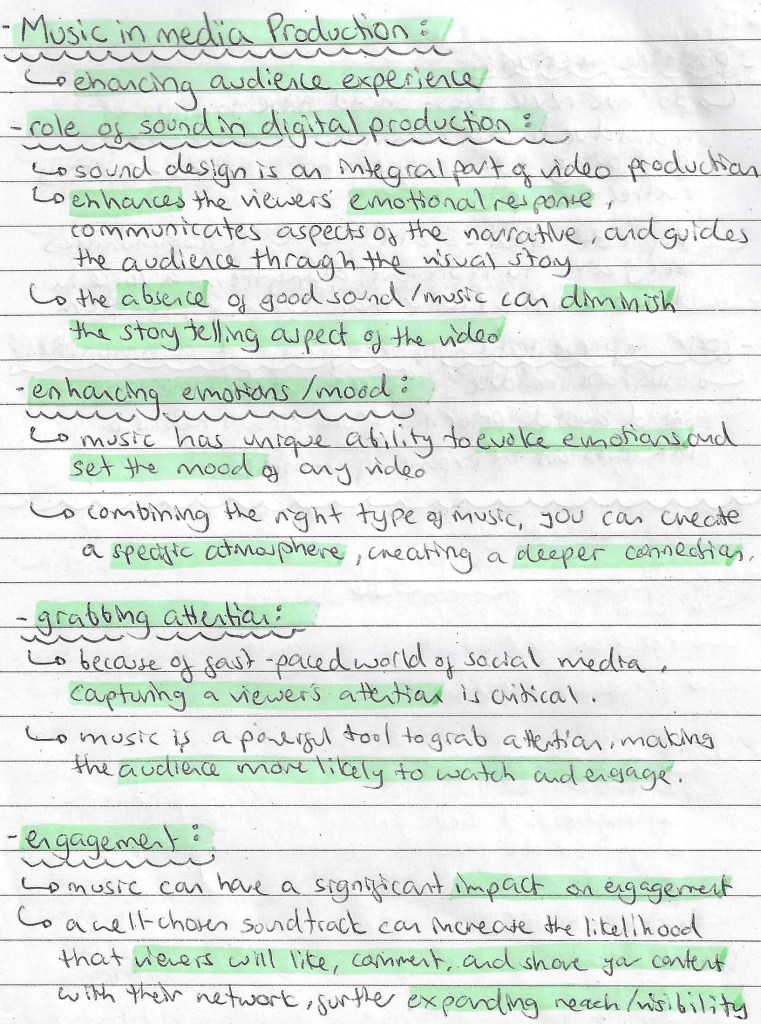 - Music in media Production:
↳ enhancing audience experience
- role of sound in digital production:
↳ sound design is an integral part of video production
↳ enhances the viewers' emotional response,
communicates aspects of the narrative, and guides
the audience through the visual story
↳ the absence of good sound/music can diminish
the story telling aspect of the video
- enhancing emotions/mood:
↳ music has unique ability to evoke emotions and
set the mood of any video
↳ combining the right type of music, you can create
a specific atmosphere, creating a deeper connection.
- grabbing attention:
↳ because of fast-paced world of social media,
capturing a viewer's attention is critical.
↳ music is a powerful tool to grab attention, making
the audience more likely to watch and engage.
- engagement:
↳ music can have a significant impact on engagement
↳ a well-chosen soundtrack can increase the likelihood
that viewers will like, comment, and share your content
with their network, further expanding reach/visibility